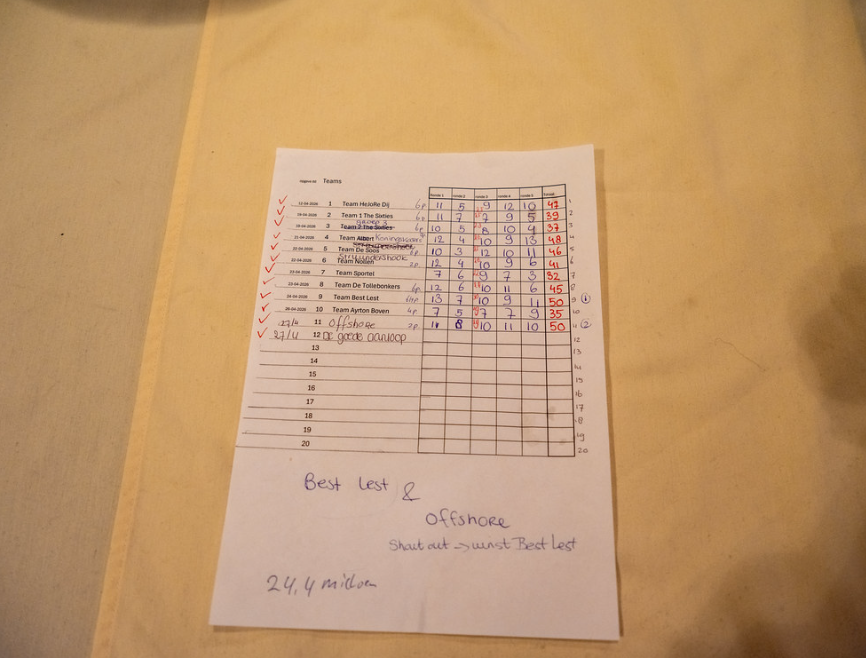 Teams
ronde 1 ronde 2 ronde 3 ronde 4 ronde 5 totaal
1 Team HeJoRe Dij 6p 11 5 9 12 10 47 1
2 Team 1 The Sixties 11 7 7 9 5 39 2
GROEP 3
3 Team 2 The Sixties 6p 10 5 8 10 4 37 3
21-04-2026 4 Team Albert 12 4 10 9 13 48 4
5 Team De Soos 6p 10 3 12 10 11 46 5
6 Team Nollen 2p. 12 4 10 9 6 41 6
7 Team Sportel 7 6 9 7 3 32 7
8 Team De Tollebonkers 6p 12 6 10 11 6 45 8
24-04-2026 9 Team Best Lest 13 7 10 9 11 50 9 1
10 Team Ayrton Boven 4p 7 5 7 7 9 35 10
27/4 11 Offshore 2p. 11 8 10 11 10 50 11 2
27/4 12 De goede aanloop 12
13 13
14 14
15 15
16 16
17 17
18 18
19 19
20 20
Best Lest &
Offshore
Shout out -> winst Best Lest
24,4 miljoen